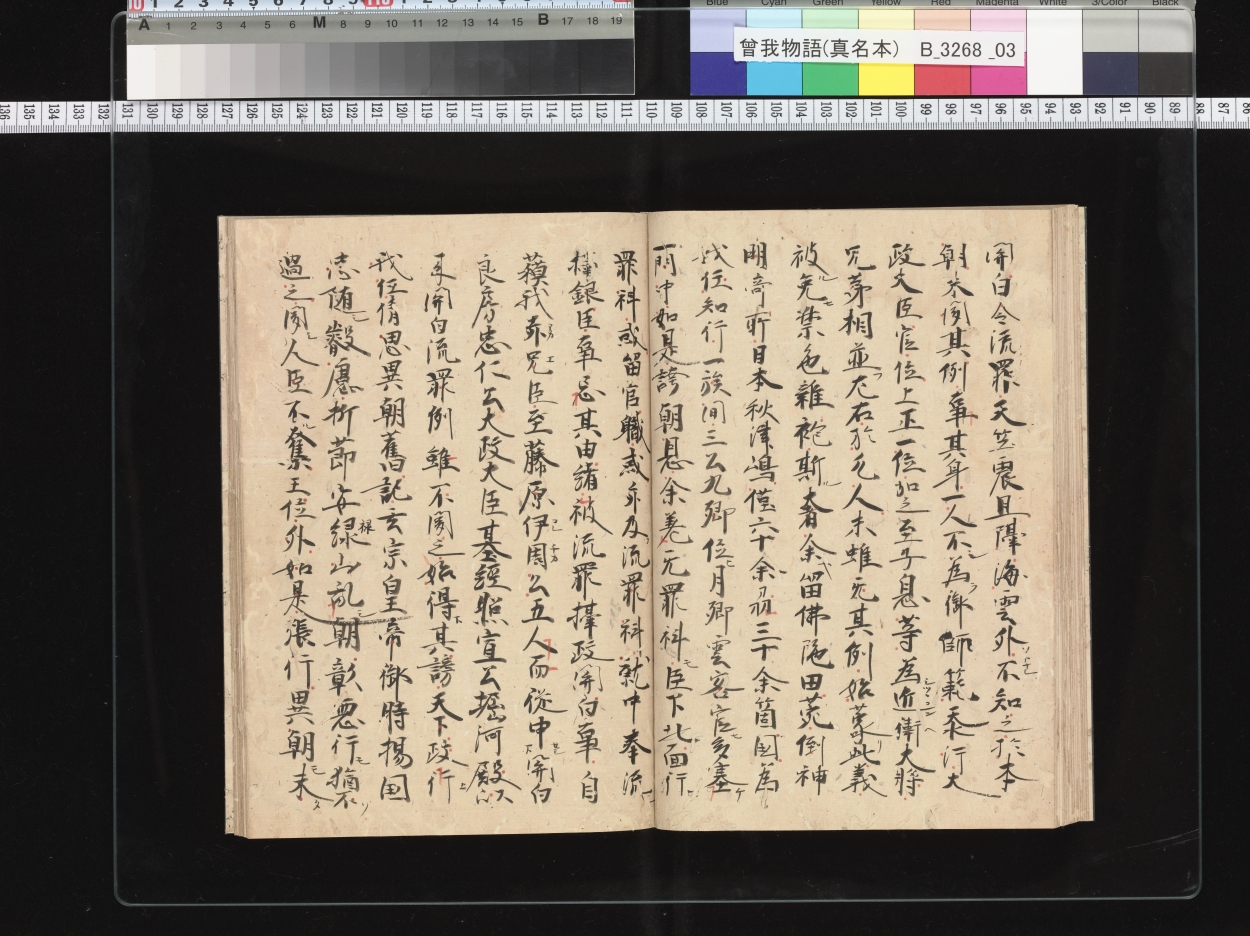 曾我物語(真名本) B_3268_03
開白令流罪天竺震旦隔海雲外不知之於本
朝未聞其例聟其身一人不為御師範忝行大
政大臣官位上正一位加之至子息等為近衛大将
兄弟相並左右於凡人未雖无其例始蒙此義
被免禁色雜袍斯奢余留佛陁田苑倒神
明帝所日本秋津嶋僅六十余刕三十余箇国為
我任知行一族間三公九卿位月卿雲客官多塞
而中如是誇朝恩余羗无罪科臣下北面行
罪科或留官軄或亦及流罪科就中奉流
其由緒被流罪摂政開白事自
我亦兄臣至藤原伊周公五人而從申開白
良房忠仁公大政大臣基經照宣公堀河殿以
来開白流罪例雖不聞之始得其謗天下政行
我任倩思異朝舊記玄宗皇帝御時楊国
忠随翫應折節安緑山乱朝彰悪行猶不
過之聞人臣不奪王位外如是張行異朝未